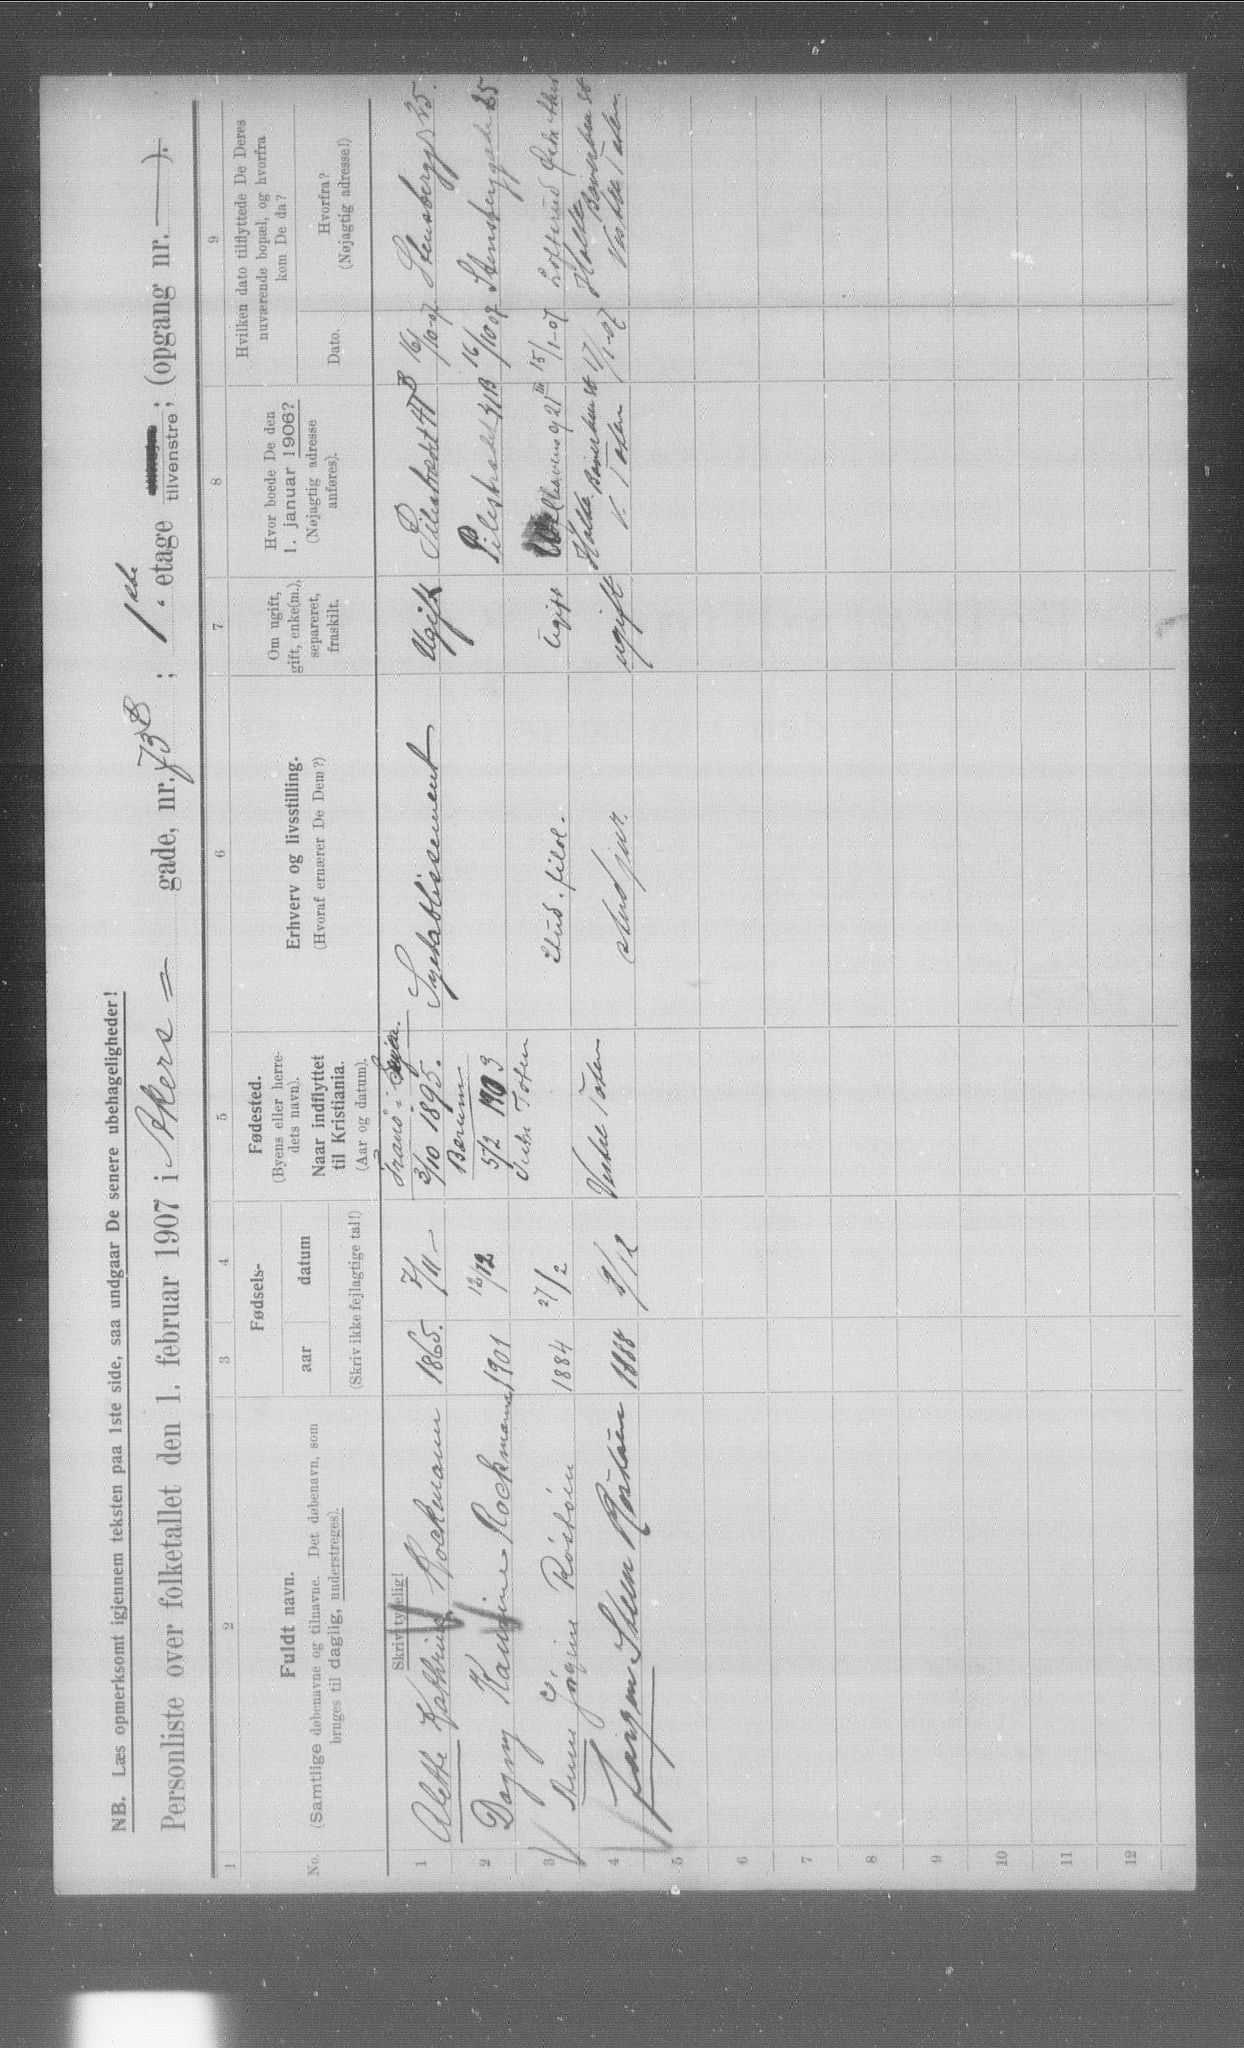 NB. Læs opmerksomt igjennem teksten paa 1ste side, saa undgaar De senere ubehageligheder!
Personliste over folketallet den 1. februar 1907 i Akers = gade, nr. 73B; 1ste etage tilvenstre; (opgang nr. —).
1 2 3 4 5 6 7 8 9
No.
Fuldt navn.
(Samtlige døbenavne og tilnavne. Det døbenavn, som
bruges til daglig, understreges).
Fødsels-
aar
datum
(Skriv ikke fejlagtige tal!)
Fødested.
(Byens eller herre-
dets navn).
Naar indflyttet
til Kristiania.
(Aar og datum).
Erhverv og livsstilling.
(Hvoraf ernærer De Dem?)
Om ugift,
gift, enke(m.),
separeret,
fraskilt.
Hvor boede De den
1. januar 1906?
(Nøjagtig adresse
anføres).
Hvilken dato tilflyttede De Deres
nuværende bopæl, og hvorfra
kom De da?
Dato.
Hvorfra?
(Nøjagtig adresse!)
Skriv tydelig!
Tranø i
1 Alette Kathrine Rockmann 1865. 7/11 — 3/10 1895. Syetablissement Ugift Pilestrædet 41B 16/10-07 Stensbergg 25.
Bærum
2 Dagny Rockmann 1901 12/12 5/2 1903 Pilestrædet 41B 16/10 07 Stensberggade 25
Toten
3 Røstøen 1884 27/2 stud. filol. Ugift Welhavensg 21 III 15/1-07
4 Jørgen Steen Røstøen 1888 9/12 Vestre Toten stud jur. ugift V. Toten 17/1-07
Vestre Toten
5
6
7
8
9
10
11
12